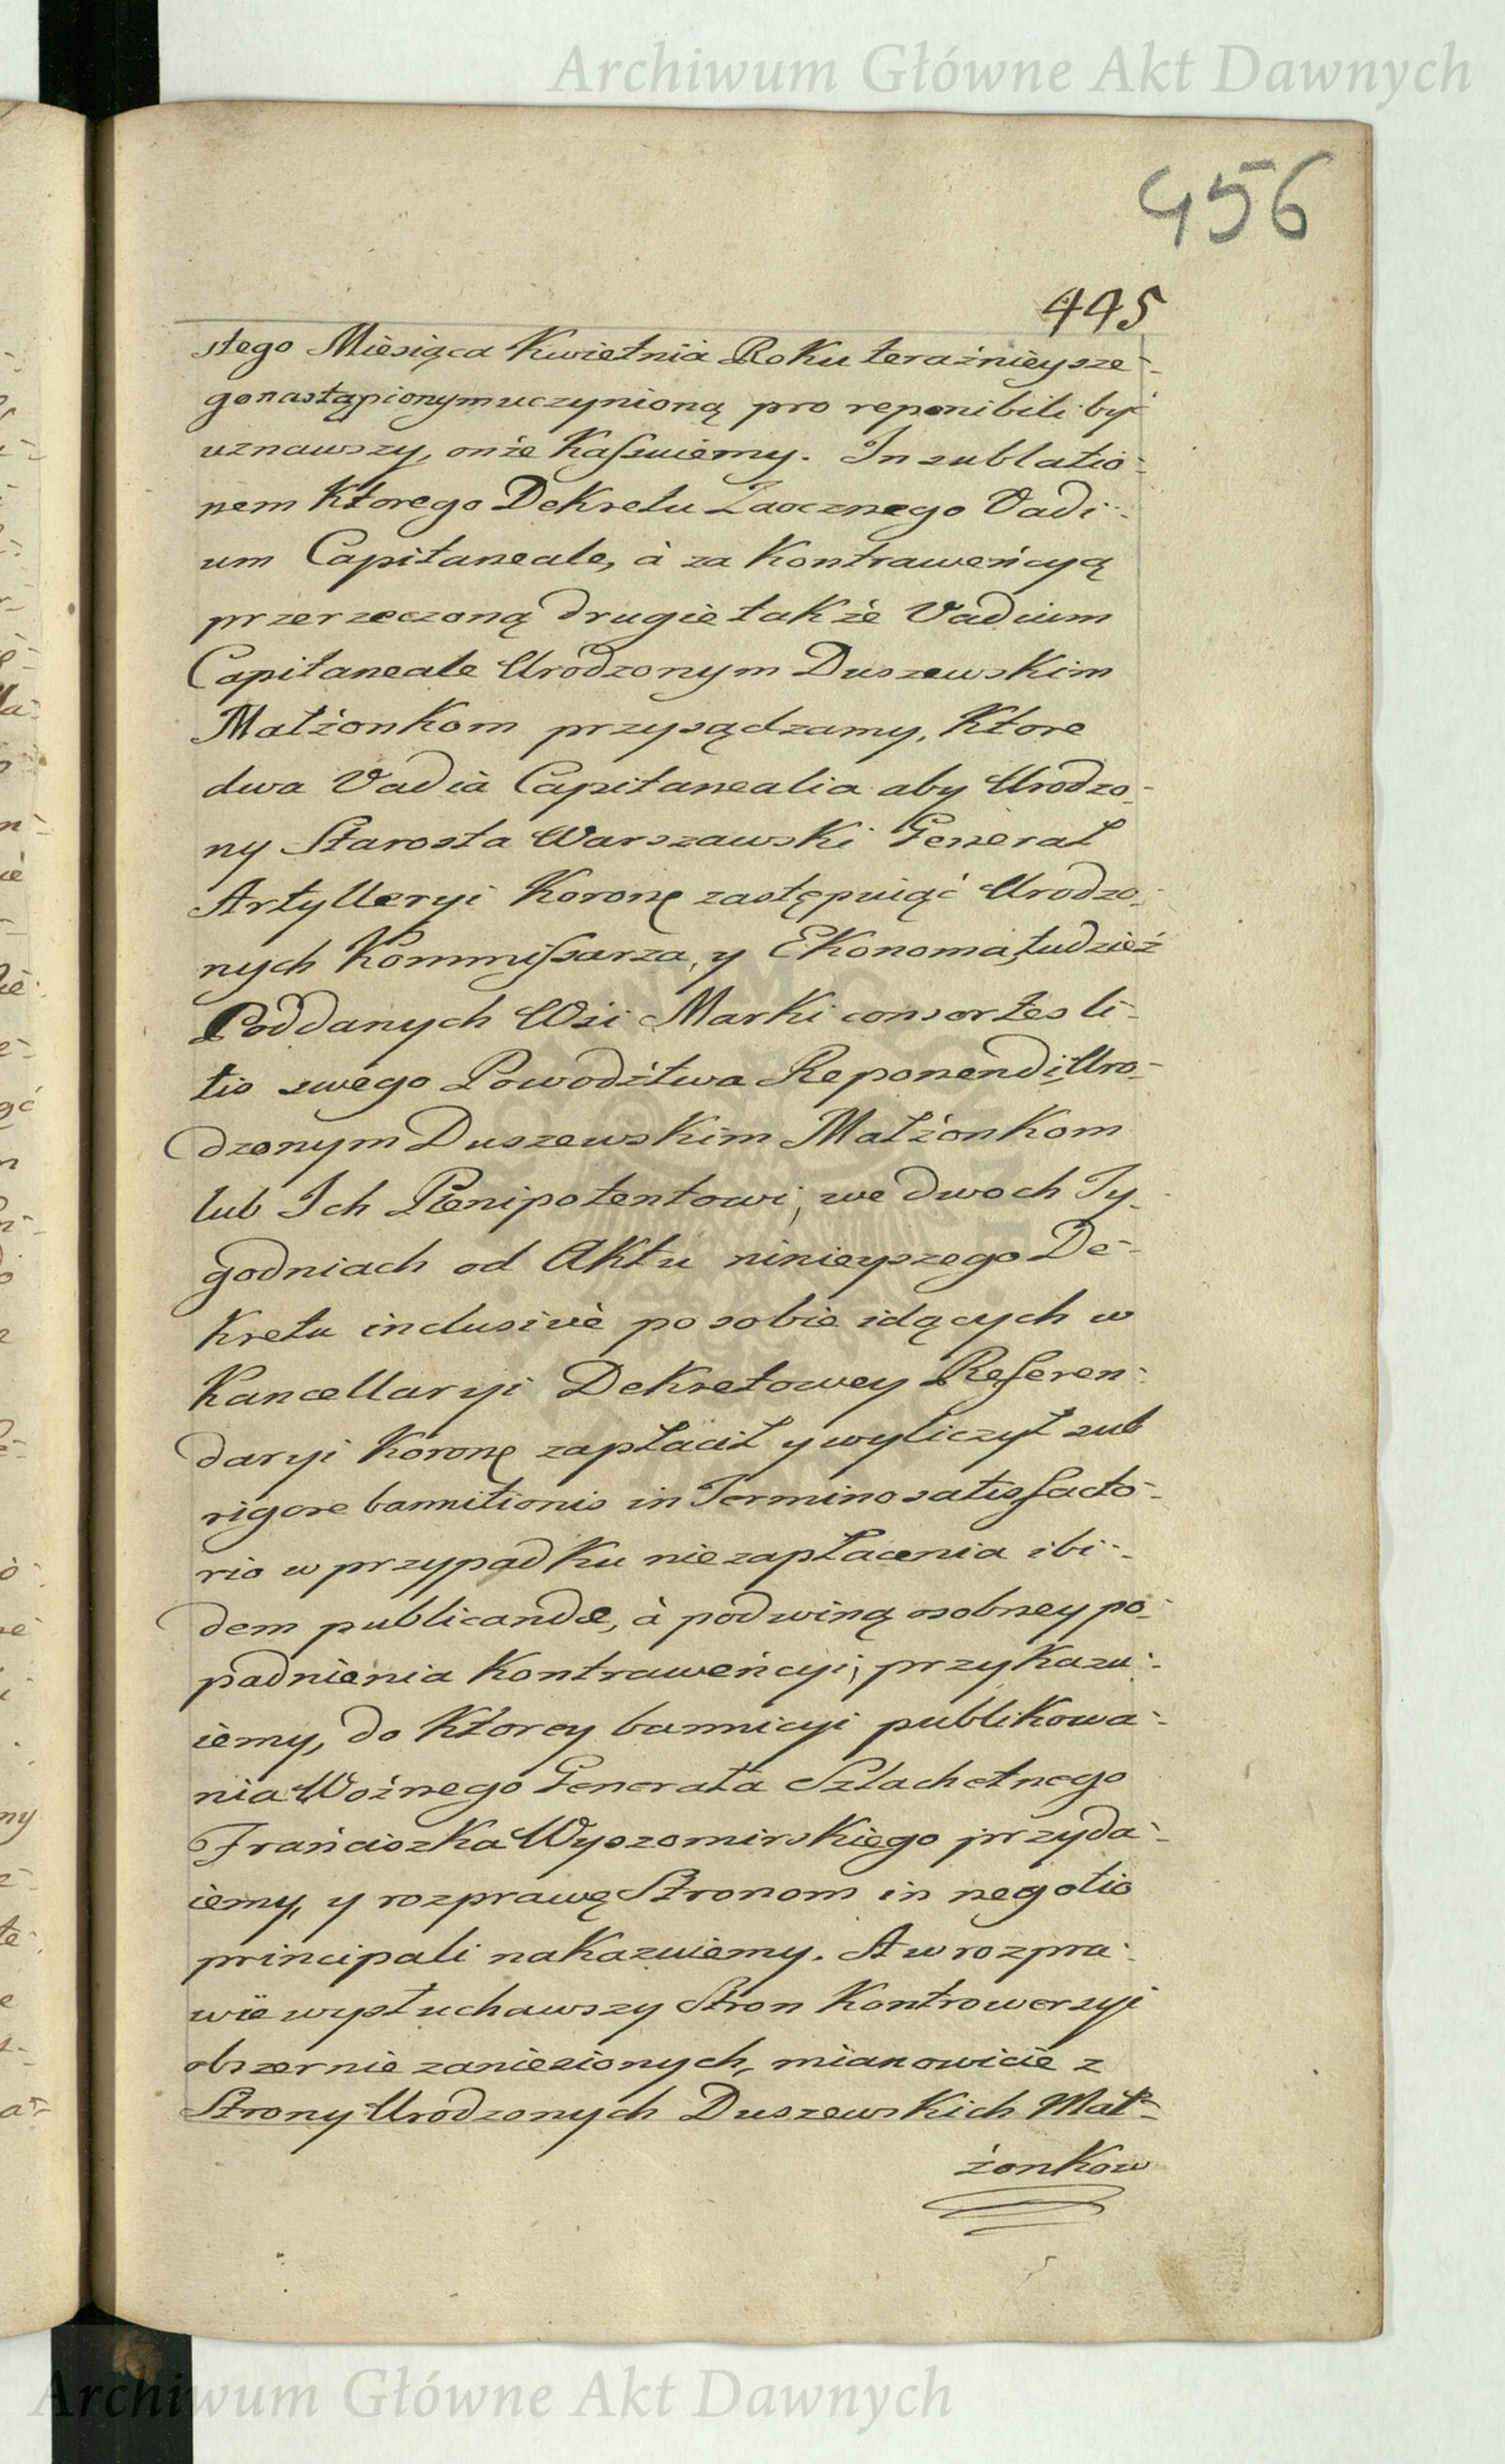 Archiwum Główne Akt Dawnych
456
445
stego Miesiąca Kwietnia Roku teraźnieysze-
go nastąpionym uczynioną pro reponibili być
uznawszy, onże Kassuiemy. In sublatio-
nem Ktorego Dekretu Zaocznego Vadi-
um Capitaneale, à za Kontraweńcyą
przerzeczoną drugie także Vadium
Capitaneale Urodzonym Duszewskim
Małżonkom przysądzamy, Ktore
dwa Vadia Capitanealia aby Urodzo-
ny Starosta Warszawski Generał
Artylleryi Koronę zastępuiąć Urodzo-
nych Kommissarza, y Ekonoma, tudzież
Poddanych Wsi Marki consortes li-
tis swego Powodźtwa Reponendi, Uro-
dzonym Duszewskim Małżonkom
lub Ich Plenipotentowi, we dwoch Ty-
godniach od Aktu ninieyszego De-
kretu inclusivè po sobie idących w
Kancellaryi Dekretowey Referen-
daryi Koronę zapłacił y wyliczył sub
rigore bannitionis in Termino satisfacto-
rio w przypadku niezapłacenia ibi-
dem publicandæ, à pod winą osobney po-
padnienia Kontraweńcyi, przykazu-
iemy, do Ktorey bannicyi publikowa-
nia Woźnego Generała Szlachetnego
Frańciszka Wyszomirskiego przyda-
iemy, y rozprawę Stronom in negotio
principali nakazuiemy. A w rozpra-
wie wysłuchawszy Stron Kontrowersyi
obszernie zaniesionych, mianowicie z
Strony Urodzonych Duszewskich Mał-
żonkow
Archiwum Główne Akt Dawnych